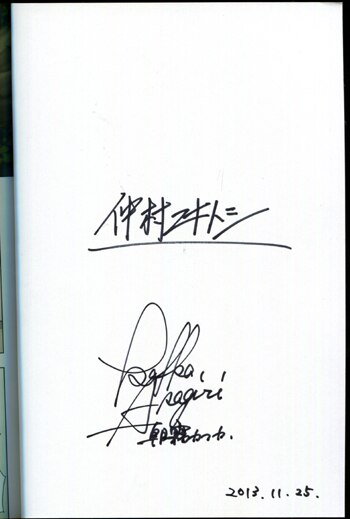 仲村ユキトシ
Kafka
Asagiri
朝霧カフカ.
2013.11.25.